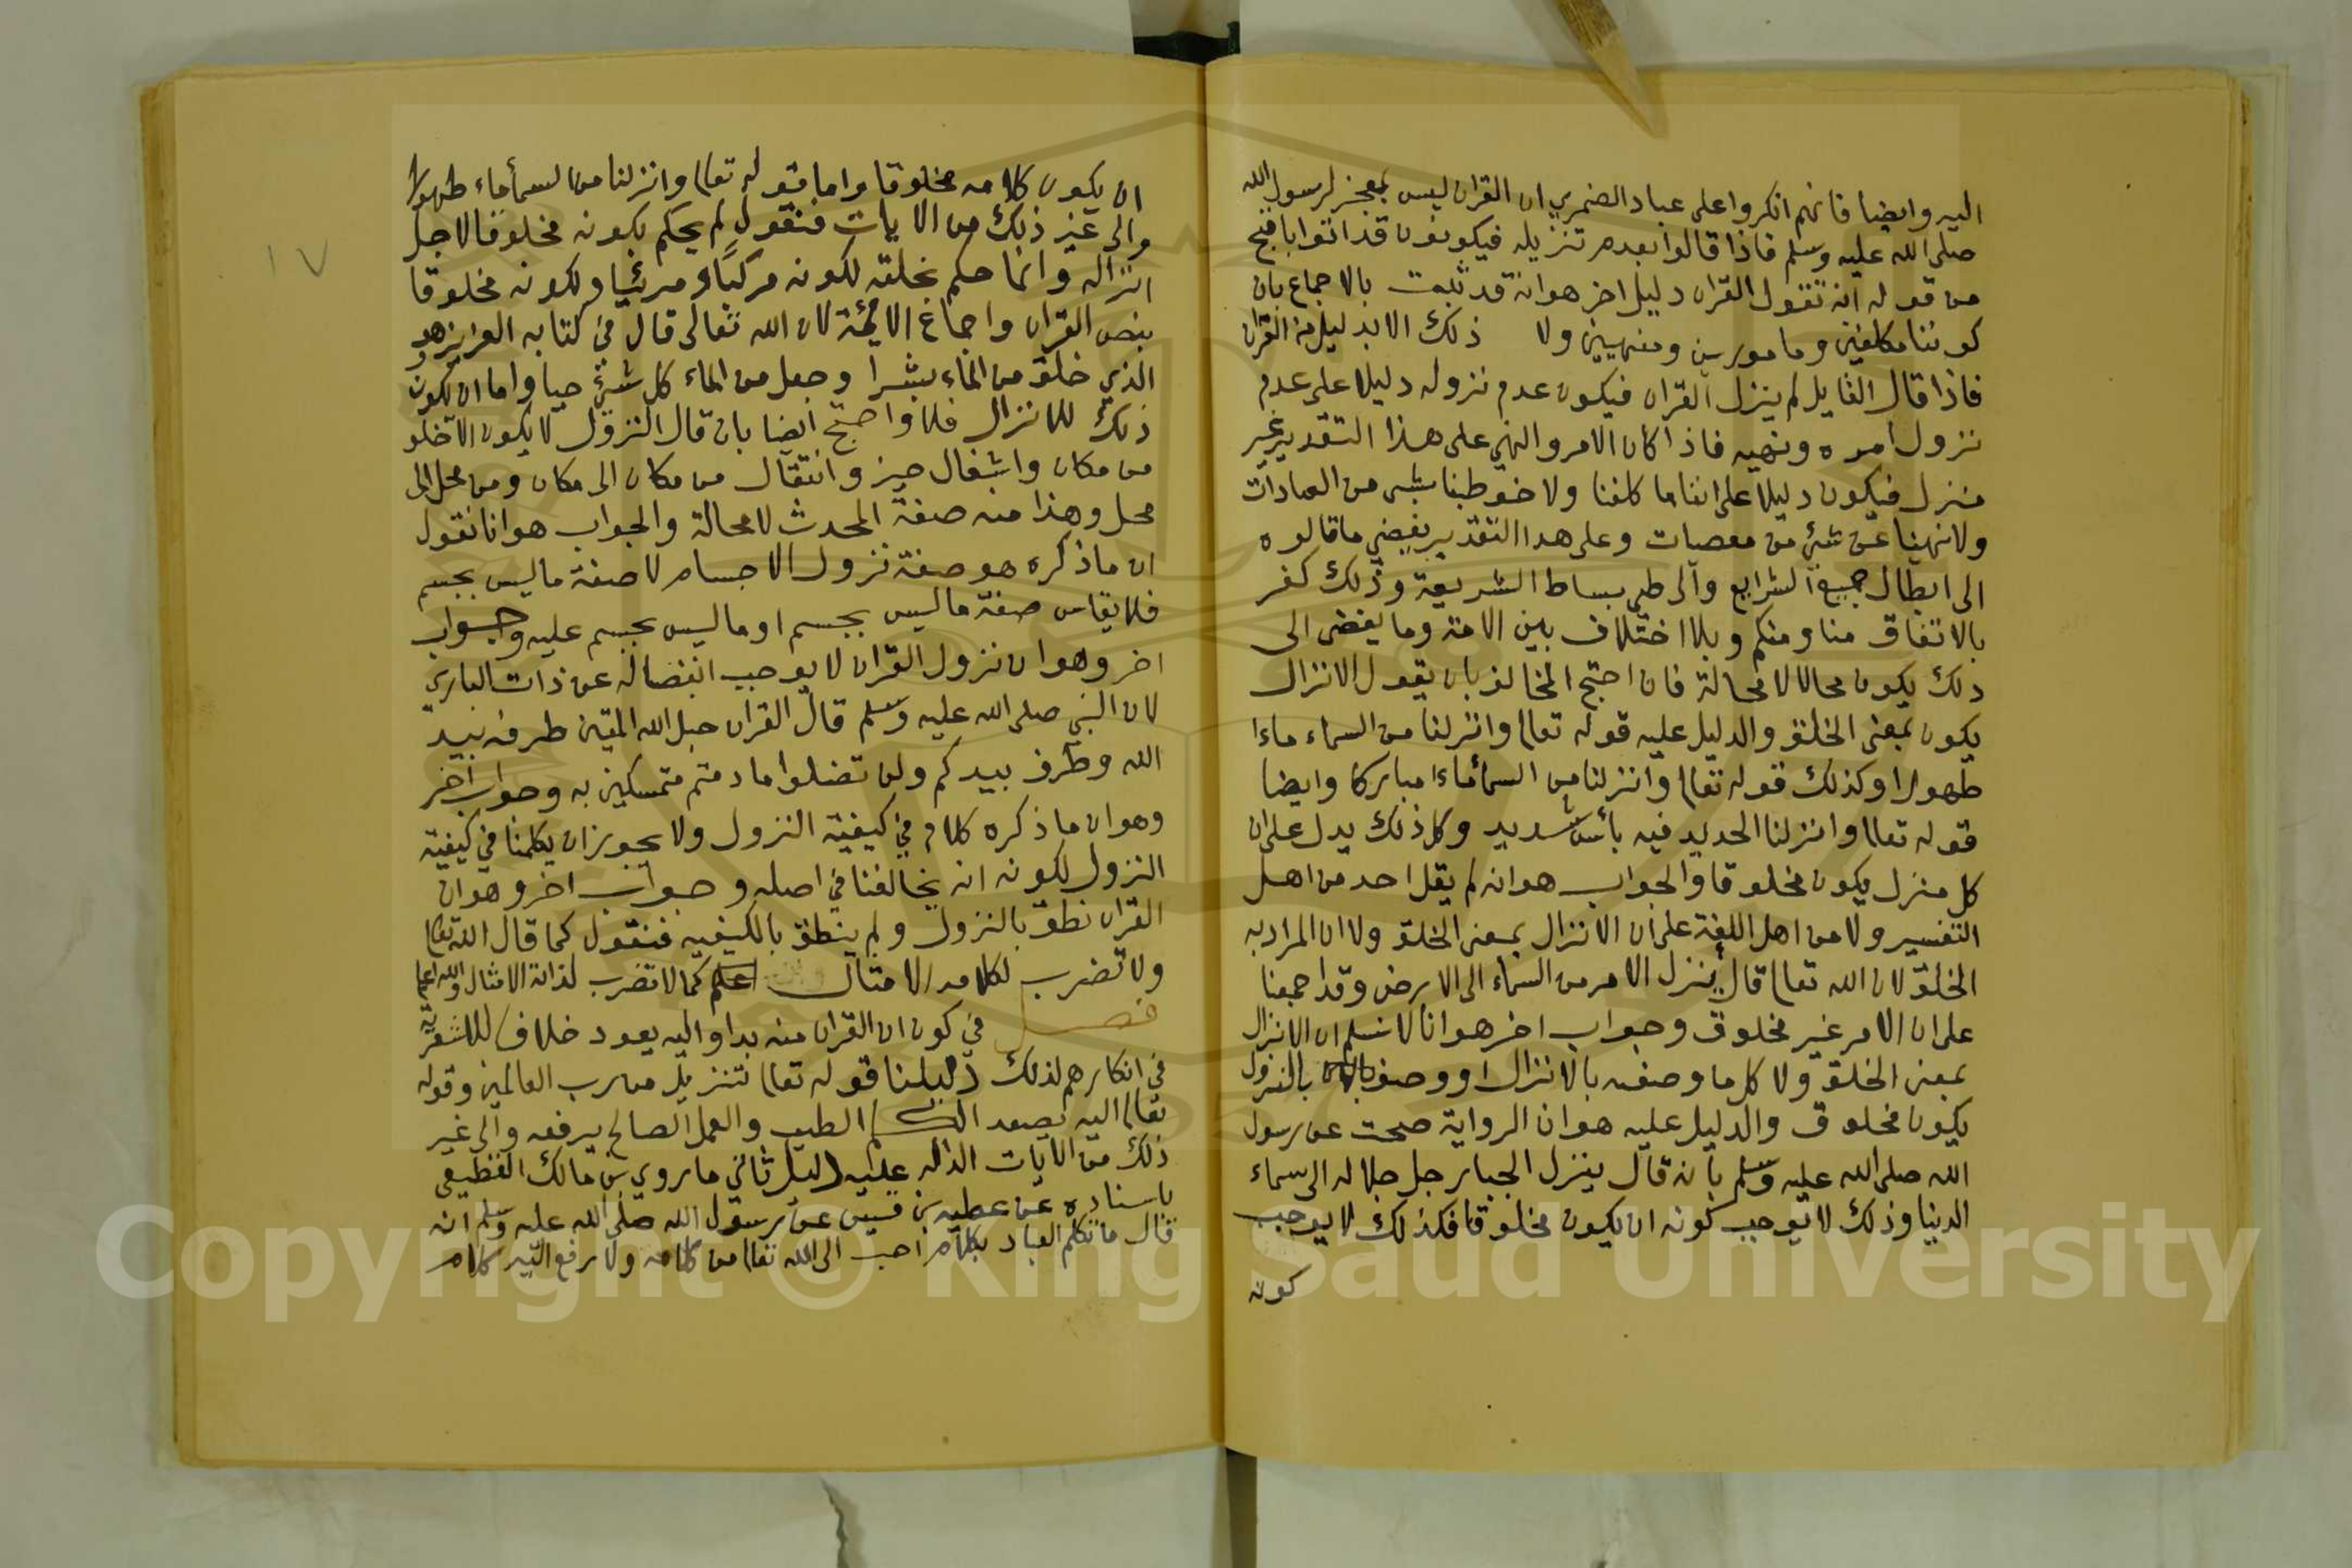 اليه وايضا فانهم انكروا على عباد الضمري ان القران ليس بمعجز لرسول الله
صلى الله عليه وسلم فاذا قالوا بعدم تنزيله فيكونون قد اتوا باقبح
من قوله انه تقول القران دليل اخر هو انه قد ثبت بالاجماع بان
كوننا مكلفين وما مورين ومنهيين ولا ذلك الا بدليل من القران
فاذا قال القايل لم ينزل القران فيكون عدم نزوله دليلا على عدم
نزول امره ونهيه فاذا كان الامر والنهي على هذا التقدير غير
منزل فيكون دليلا على اننا ما كلفنا ولا خوطبنا بشى من العبادات
ولا نهينا عن شئ من معصيات وعلى هذا التقدير يفضي ما قالوه
الى ابطال جميع الشرايع والى طي بساط الشريعة وذلك كفر
بالاتفاق منا ومنكم وبلا اختلاف بين الامة وما يفضى الى
ذلك يكون محالا لا محالة فان احتج المخالف بان يقول الانزال
يكون بمعنى الخلق والدليل عليه قوله تعالى وانزلنا من السماء ماءا
طهورا وكذلك قوله تعالى وانزلنا من السماء ماءا مباركا وايضا
قوله تعالى وانزلنا الحديد فيه بأس شديد وكل ذلك يدل على ان
كل منزل يكون مخلوقا والجواب هو انه لم يقل احد من اهل
التفسير ولا من اهل اللغة على ان الانزال بمعنى الخلق ولا ان المراد به
الخلق لان الله تعالى قال ينزل الامر من السماء الى الارض وقد اجمعنا
على ان الامر غير مخلوق وجواب اخر هو انا لا نسلم ان الانزال
بمعنى الخلق ولا كل ما وصف بالانزال او وصف بالنزول
يكون مخلوق والدليل عليه هو ان الرواية صحت عن رسول
الله صلى الله عليه وسلم بانه قال ينزل الجبار جل جلاله الى سماء
الدنيا وذلك لا يوجب كونه ان يكون مخلوقا فكذلك لا يوجب
كونه
١٧
ان يكون كلامه مخلوقا واما قوله تعالى وانزلنا من السماء ماء طهورا
والى غير ذلك من الايات فنقول لم يحكم بكونه مخلوقا لاجل
انزاله وانما حكم بخلقه لكونه مركبا ومرئيا ولكونه مخلوقا
بنص القران واجماع الائمة لان الله تعالى قال في كتابه العزيز وهو
الذي خلق من الماء بشرا وجعل من الماء كل شئ حيا واما ان يكون
ذلك للانزال فلا واحتج ايضا بان قال النزول لا يكون الا تخلو
من مكان واشغال حيز وانتقال من مكان الى مكان ومن محل الى
محل وهذا منه صفة المحدث لا محالة والجواب هو انا نقول
ان ما ذكره هو صفة نزول الاجسام لا صفة ما ليس بجسم
فلا يقاس صفة ما ليس بجسم او ما ليس بجسم عليه وجواب
اخر وهو ان نزول القران لا يوجب انفصاله عن ذات الباري
لان النبي صلى الله عليه وسلم قال القران حبل الله المتين طرفه بيد
الله وطرف بيدكم ولن تضلوا ما دمتم متمسكين به وجواب اخر
وهو ان ما ذكره كلام في كيفية النزول ولا يجوز ان يكلمنا في كيفية
النزول لكونه انه يخالفنا في اصله وجواب اخر وهو ان
القران نطق بالنزول ولم ينطق بالكيفيه فنقول كما قال الله تعالى
ولا تضرب لكلامه الامثال كما لا تضرب لذاته الامثال والله اعلم
فصل في كون ان القران منه بدا واليه يعود خلاف للاشعرية
في انكارهم لذلك دليلنا قوله تعالى تنزيل من رب العالمين وقوله
تعالى اليه يصعد الكلم الطيب والعمل الصالح يرفعه والى غير
ذلك من الايات الداله عليه دليل ثاني ما روي بن مالك القطيعى
باسناده عن عطيه بن قيس عن رسول الله صلى الله عليه وسلم انه
قال ما تكلم العباد بكلام احب الى الله تعالى من كلامه ولا رفع اليه كلام
Copyright © King Saud University